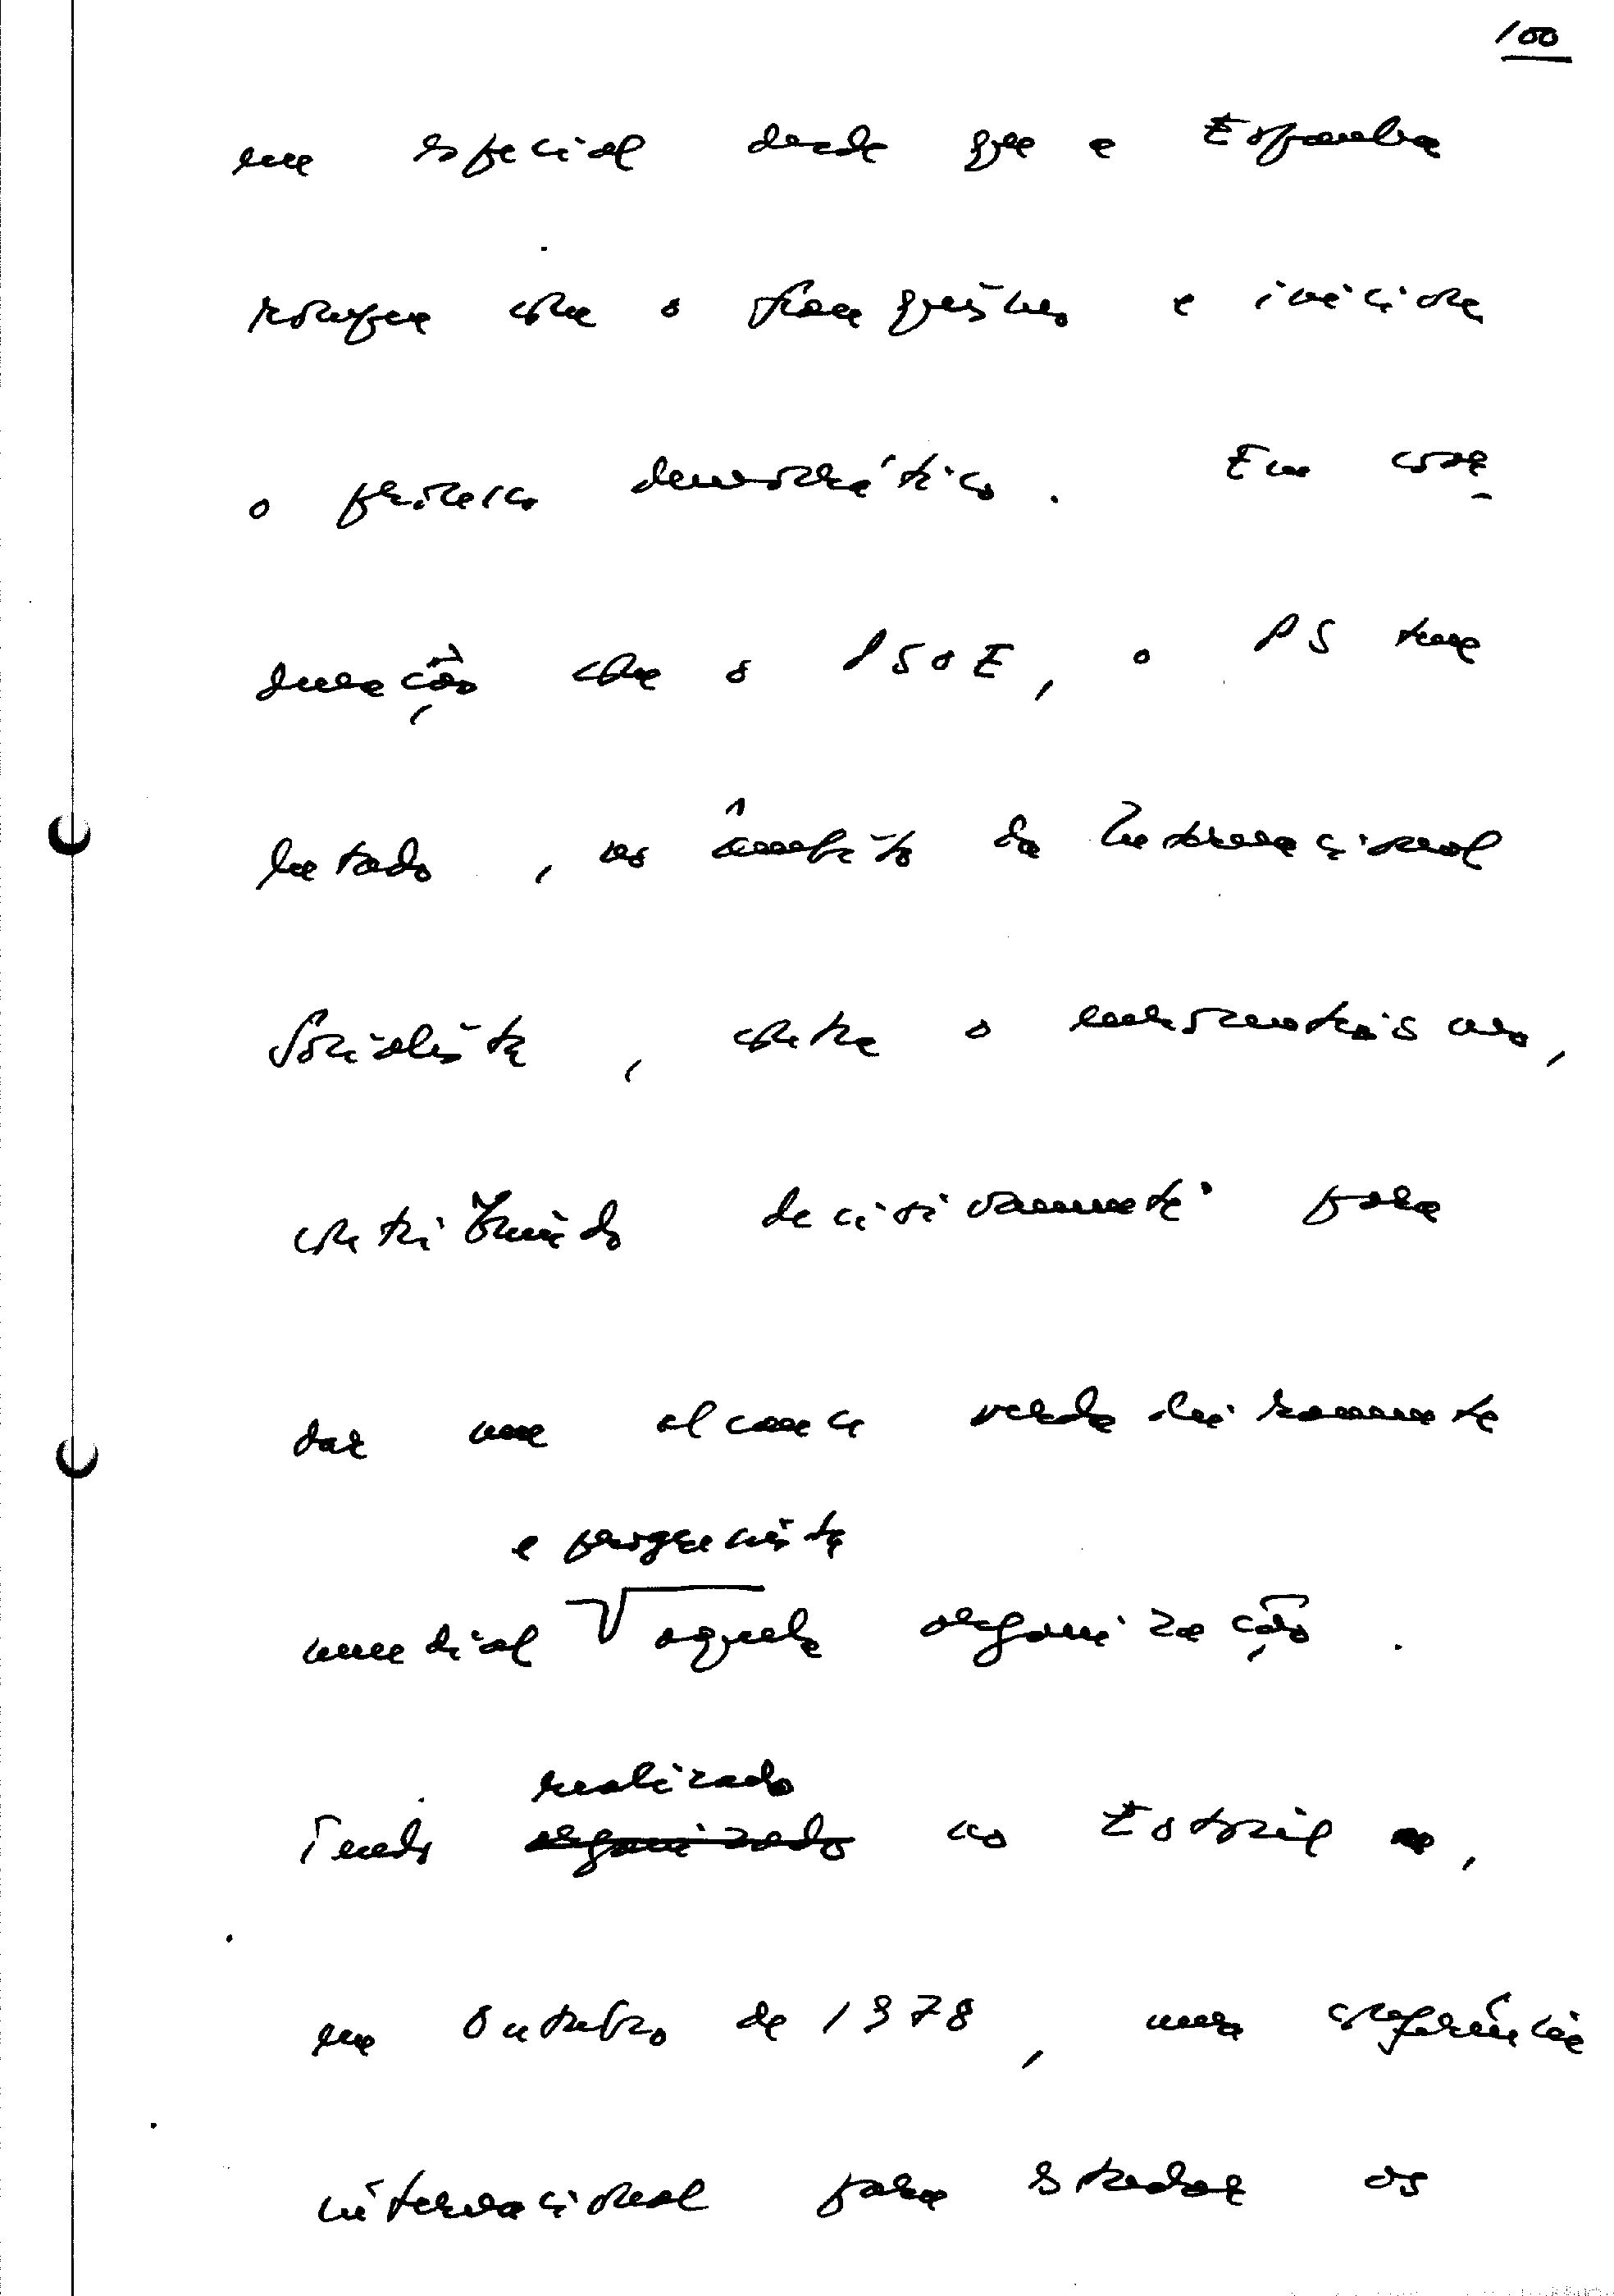 100
em especial desde que a Espanha
rompeu com o franquismo e iniciou
o processo democrático. Em coor-
denação com o PSOE, o PS tem
lutado, no âmbito da Internacional
Socialista, contra o eurocentrismo,
contribuindo decisivamente para
dar um alcance verdadeiramente
e progressista
mundial aquela organização.
realizado
Tendo organizado no Estoril,
em Outubro de 1978, uma conferência
internacional para estudar os